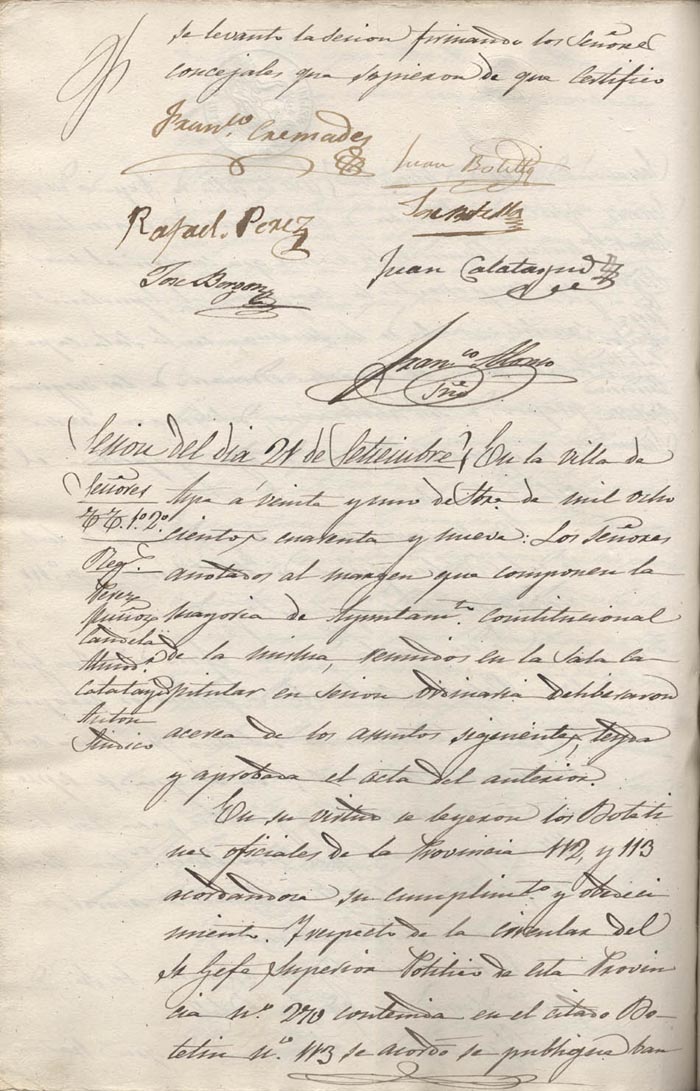 se levanto la sesion firmando los Señores
concejales que supieron de que Certifico
Fran.co Cremades
Juan Botella
Rafael Perez
Jose Botella
Juan Calatayud
Fran.co Alonso
Srio
Sesion del dia 21 de Setiembre
En la villa de
Señores
T.T. 1.o 2.o
Reg.s
Perez
Muñoz
Candela
Calatayud
Anton
Sindico
Aspe á veinte y uno de Sbre. de mil ocho
cientos cuarenta y nueve: Los Señores
anotados al margen que componen la
mayoria de Ayuntam.to constitucional
de la misma, reunidos en la Sala ca-
pitular en sesion ordinaria deliberaron
acerca de los asuntos siguientes, leyda
y aprobada el acta del anterior.
En su virtud se leyeron los Boleti
nes oficiales de la Provincia 112, y 113
acordandose su cumplim.to y obedeci
miento. Y respecto de la circular del
Sr. Gefe Superior Politico de esta Provin
cia n.o 270 contenida en el citado Bo-
letin n.o 113 se acordo se publique ban